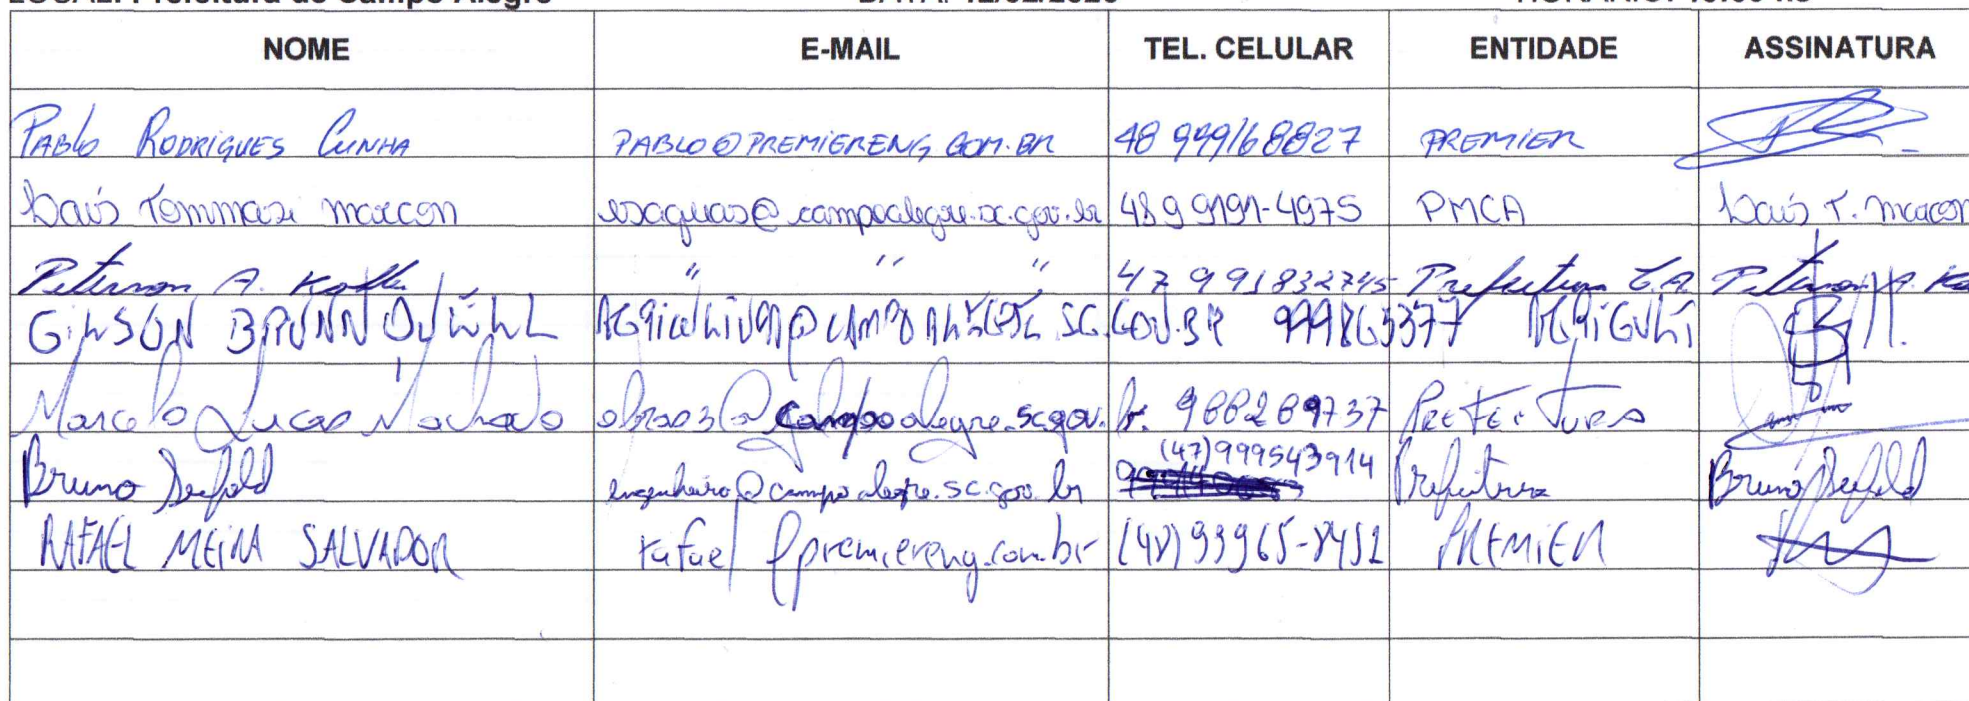 LOCAL: Prefeitura de Campo Alegre DATA: 12/02/2020 HORÁRIO:
NOME E-MAIL TEL. CELULAR ENTIDADE ASSINATURA
PABLO RODRIGUES CUNHA PABLO@PREMIERENG.COM.BR 48 999168827 PREMIER
Laís Tommasi Marcon @campoalegre.sc.gov.br 48 9 9191-4975 PMCA Laís T. Marcon
Peterson A. " " " 47 991832745 Prefeitura C.A. Peterson A.
GILSON AGRICULTURA@CAMPOALEGRE.SC.GOV.BR AGRICULT
Marcelo Lucas Machado obras3@campoalegre.sc.gov.br. 988289737 PREFEITURA
Bruno Seefeld engenheiro@campoalegre.sc.gov.br (47)999543914 Prefeitura Bruno Seefeld
RAFAEL MEIRA SALVADOR rafael@premiereng.com.br (48)93965-8451 PREMIER